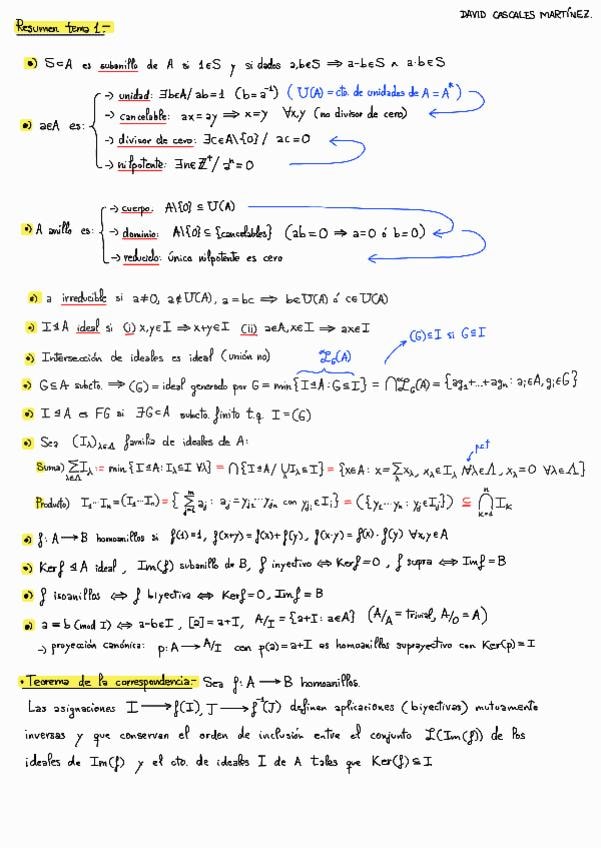 DAVID CASCALES MARTÍNEZ.
Resumen tema 1.-
•) S⊂A es subanillo de A si 1∈S y si dados a,b∈S ⇒ a-b∈S ∧ a·b∈S
•) a∈A es:
→ unidad: ∃b∈A/ ab=1 (b=a⁻¹) ( U(A) = cto. de unidades de A = A*)
→ cancelable: ax=ay ⇒ x=y ∀x,y (no divisor de cero)
→ divisor de cero: ∃c∈A\{0} / ac=0
→ nilpotente: ∃n∈ℤ⁺/ aⁿ=0
•) A anillo es:
→ cuerpo: A\{0} ⊆ U(A)
→ dominio: A\{0} ⊆ {cancelables} (ab=0 ⇒ a=0 ó b=0)
→ reducido: único nilpotente es cero
•) a irreducible si a≠0, a∉U(A), a=bc ⇒ b∈U(A) ó c∈U(A)
•) I≤A ideal si (i) x,y∈I ⇒ x+y∈I (ii) a∈A, x∈I ⇒ ax∈I
(G)⊆I si G⊆I
•) Intersección de ideales es ideal (unión no) 𝓛_G(A)
•) G⊆A subcto. ⇒ (G) = ideal generado por G = min{I≤A : G⊆I} = ⋂𝓛_G(A) = {ag₁+...+agₙ : aᵢ∈A, gᵢ∈G}
•) I≤A es FG si ∃G⊂A subcto. finito t.q. I=(G)
•) Sea (I_λ)_λ∈Λ familia de ideales de A:
pct
Suma) ∑_λ∈Λ I_λ := min{I≤A : I_λ⊆I ∀λ} = ⋂{I≤A / ⋃I_λ⊆I} = {x∈A : x=∑_λ x_λ, x_λ∈I_λ ∀λ∈Λ, x_λ=0 ∀λ∈Λ}
Producto) I₁···Iₙ = (I₁···Iₙ) = { ∑_{j=1}^m a_j : a_j = y_j₁···y_jn con y_ji∈Iᵢ} = ({y₁···yₙ : y_j∈I_j}) ⊆ ⋂_{k=1}^n I_k
•) f: A→B homoanillos si f(1)=1, f(x+y)=f(x)+f(y), f(x·y)=f(x)·f(y) ∀x,y∈A
•) Kerf ≤A ideal, Im(f) subanillo de B, f inyectivo ⇔ Kerf=0, f supra ⇔ Imf=B
•) f isoanillos ⇔ f biyectiva ⇔ Kerf=0, Imf=B
•) a≡b (mod I) ⇔ a-b∈I, [a]=a+I, A/I = {a+I : a∈A} (A/A = trivial, A/0 = A)
→ proyección canónica: p: A→A/I con p(a)=a+I es homoanillos suprayectivo con Ker(p)=I
• Teorema de la correspondencia:- Sea f: A→B homoanillos.
Las asignaciones I→f(I), J→f⁻¹(J) definen aplicaciones (biyectivas) mutuamente
inversas y que conservan el orden de inclusión entre el conjunto 𝓛(Im(f)) de los
ideales de Im(f) y el cto. de ideales I de A tales que Ker(f)⊆I